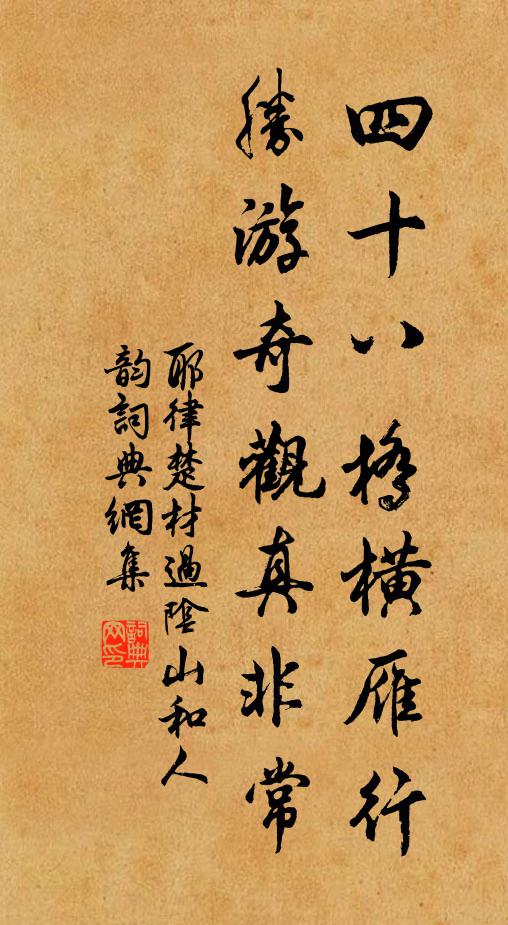 四十八橋橫雁行
勝游奇觀真非常
耶律楚材過陰山和人
韵詞典網集
詞典
网印